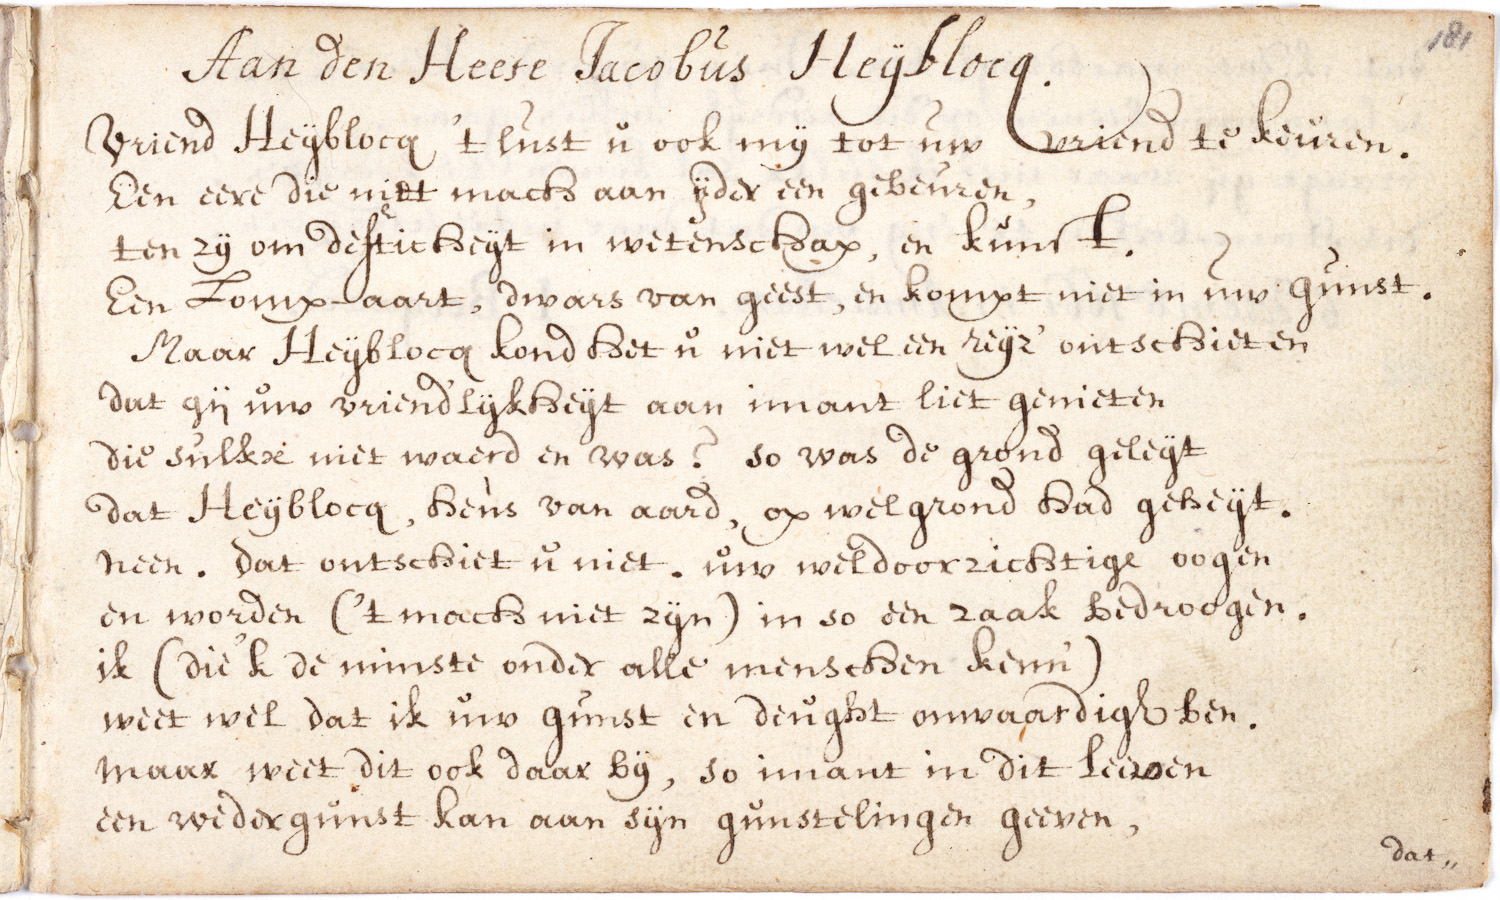 181
Aan den Heere Jacobus Heÿblocq.
Vriend Heÿblocq 't lust u ook mÿ tot uw vriend te keuren.
Een eere die niet mach aan ÿder een gebeuren,
ten zÿ om defticheÿt in wetenschap, en kunst.
Een Lomp-aart, dwars van geest, en kompt niet in uw gunst.
Maar Heÿblocq kond het u niet wel een reÿz' ontschieten
dat gij uw vriend'lÿkheÿt aan imant liet genieten
die sulkx niet waerd en was? so was de grond geleÿt
dat Heÿblocq, heus van aard, op welgrond had geheÿt.
neen. dat ontschiet u niet. uw weldoorzichtige oogen
en worden ('t mach niet zÿn) in so een zaak bedroogen.
ik (die 'k de minste onder alle menschen kenn')
weet wel dat ik uw gunst en deught onwaardigh ben.
maar weet dit ook daar bÿ, so imant in dit leeven
een wedergunst kan aan sÿn gunstelingen geeven,
dat,,